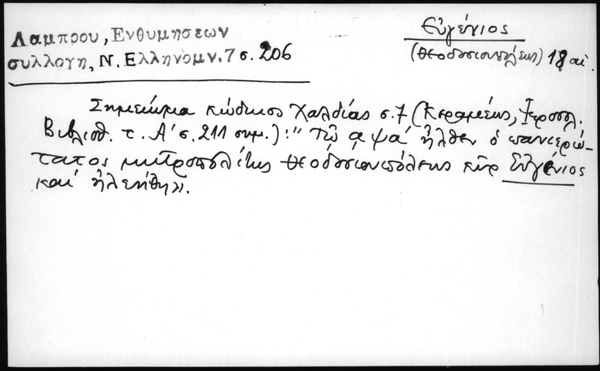 Λαμπρου, Ενθυμησεων
συλλογη, Ν. Ελληνομν. 7 σ. 206
Εὐγένιος
(Θεοδοσιουπόλεως) 18 αἰ.
Σημείωμα κώδικος Χαλδίας σ. 7 (Κεραμέως, Ἱεροσολ.
Βιβλιοθ. τ. Α' σ. 211 σημ.): "Τῷ αψα' ἦλθεν ὁ πανιερώ-
τατος μητροπολίτης Θεοδοσιουπόλεως κὺρ Εὐγένιος
καὶ ἠλεήθη».